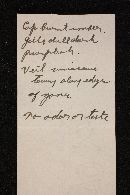 Cap burnt umber.
Gills dull dark
purplish.
Veil
tawny along edges
of spores
no odor or taste